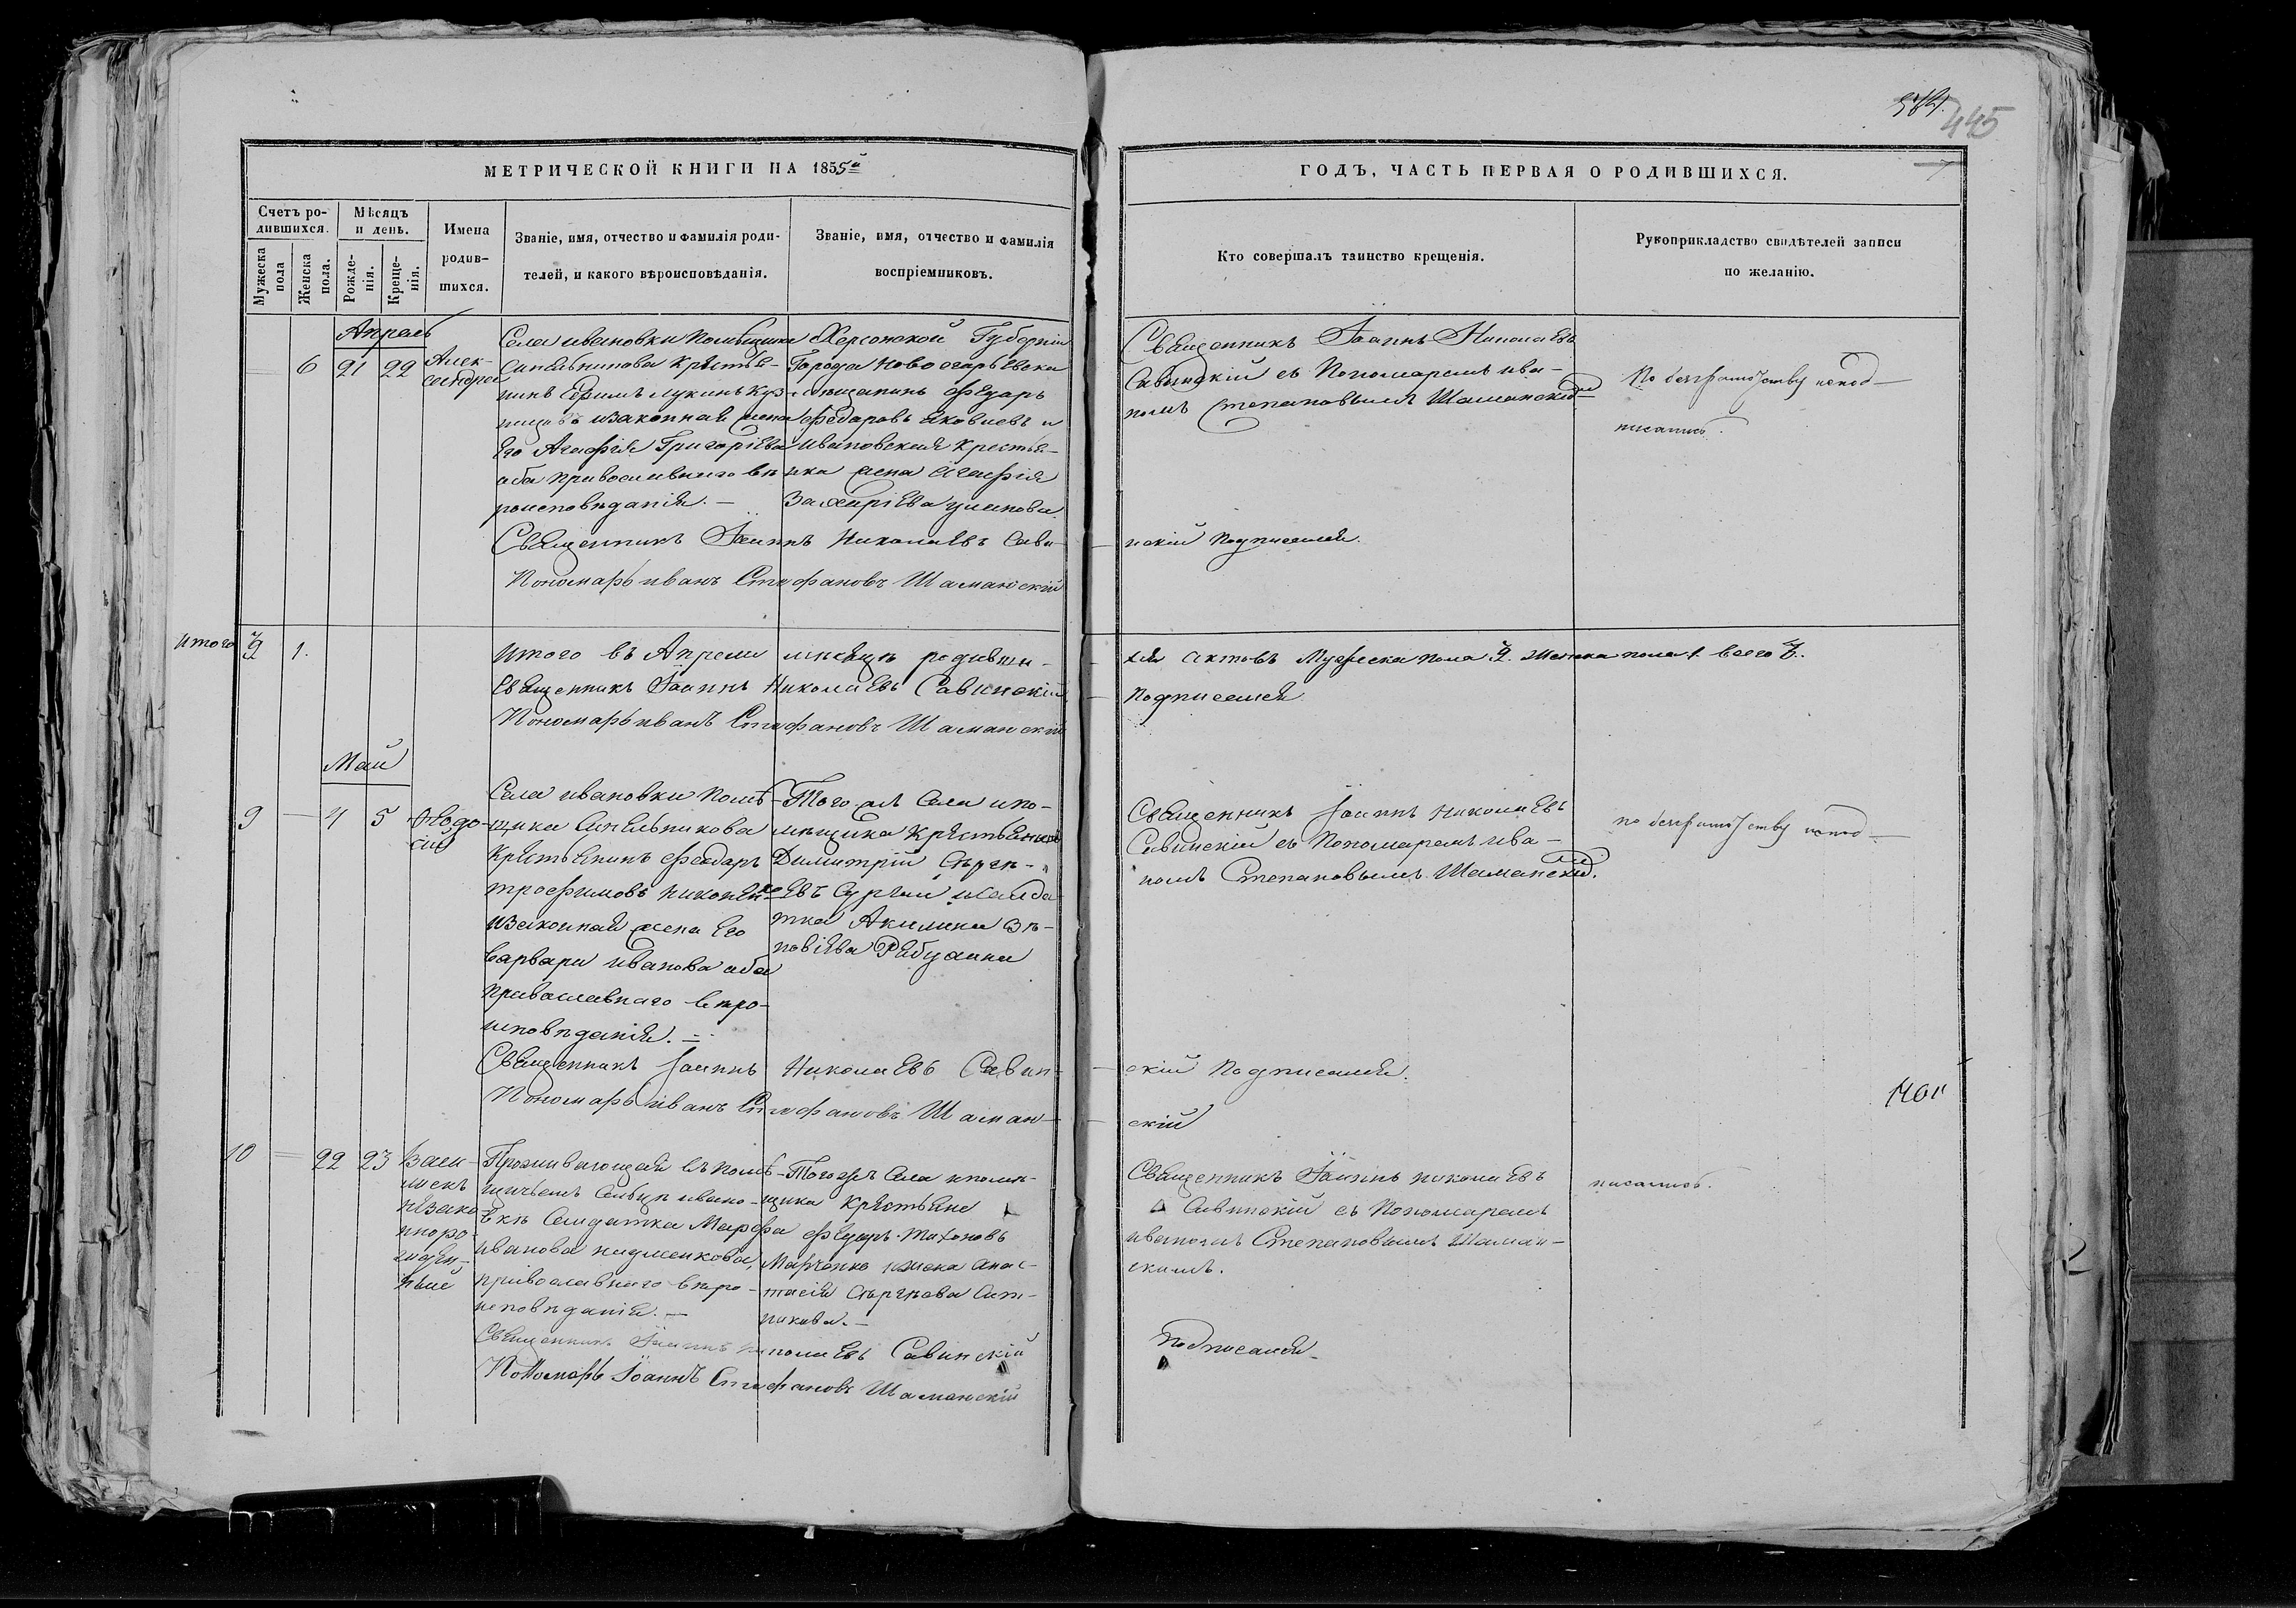 445
МЕТРИЧЕСКОЙ КНИГИ НА 1855й
ГОДЪ, ЧАСТЬ ПЕРВАЯ О РОДИВШИХСЯ.
Счетъ ро-
дившихся.
Мужеска
пола
Женска
пола.
Мѣсяцъ
и день.
Рожде-
нія.
Креще-
нія.
Имена
родив-
шихся.
Званіе, имя, отчество и фамилія роди-
телей, и какого вѣроисповѣданія.
Званіе, имя, отчество и фамилія
воспріемниковъ.
Кто совершалъ таинство крещенія.
Рукоприкладство свидѣтелей записи
по желанію.
Апрель
6 21 22
Алек-
сандра
Села ивановки Помѣщика
Синельникова Крестья-
нинъ Ефимъ Лукинъ
изаконная жена
Его Агафія Григоріева
оба православнаго вѣ
роисповѣданія. —
Херсонской Губерніи
Города Новогеоргіевска
мещанинъ Федаръ
Федаровъ Яковлевъ и
ивановская Крестья-
нка жена Агафія
Захаріева
Священникъ Іоаннъ Николаевъ
Савинскій съ Пономаремъ ива-
номъ Степановымъ Шаманским
По безграмотству непод-
писались.
Священникъ Іоаннъ Николаевъ Сави-
нскій Подписался.
Пономарь иванъ Стефановъ Шаманскій
итого
1.
Итого въ Апрели месяцѣ родивши-
хся актовъ Мужеска пола женска пола 1. всего
Священникъ Іоаннъ Николаевъ Савинскій
Подписался
Пономарь иванъ Стефановъ Шаманскій
Май
9 — 4 5
Ѳеодо-
сій
Села ивановки Помѣ-
щика Синельникова
Крестьянинъ Феодаръ
трофимовъ никонен
изаконная жена Его
варвара иванова оба
православнаго вѣро-
исповѣданія.
Того же Села ипо-
мѣщика Крестьянинъ
Димитрій Сергѣ-
евъ исалда-
тка Акилина Зѣ-
новіева
Священникъ Іоаннъ Николаевъ
Савинскій съ Пономаремъ ива-
номъ Степановымъ Шаманским.
по безграмотству непод-
писались.
Священникъ Іоаннъ Николаевъ Савин-
скій Подписался.
Пономарь иванъ Стефановъ Шаман-
скій
10 — 22 23
Васи-
незако
ннорож
ден-
ные
Проживающая въ помѣ-
щичьемъ ивано-
вкѣ Салдатка Марфа
иванова
православнаго вѣро-
исповѣданія. —
Тогоже Села ипомѣ-
щика Крестьяне
Федаръ Тихоновъ
Марченко ижена Анас-
тасія Сергѣева Сит-
никова. —
Священникъ Іоаннъ николаевъ
Савинскій съ Пономаремъ
иваномъ Степановымъ Шаман-
скимъ.
Священникъ Іоаннъ николаевъ Савинскій
подписался
Пономарь Іоаннъ Стефановъ Шаманскій